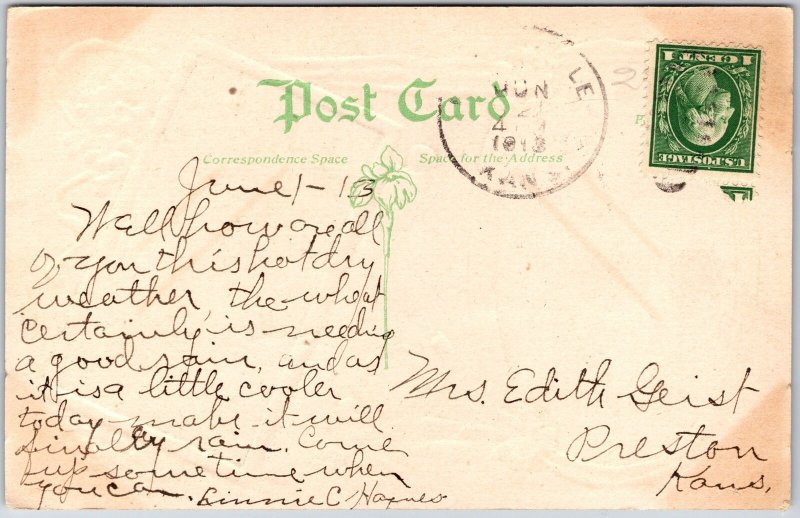 Post Card
Correspondence Space
Space for the Address
LE
JUN
4 PM
1913
KAN
1 CENT 1
U.S. POSTAGE
June 1 - 13
Well how are all
of you this hot dry
weather, the wheat
certainly, is needing
a good rain, and as
it is a little cooler
today it will
rain. Come
up sometime when
you can. C Haynes
Mrs. Edith Geist
Preston
Kans.